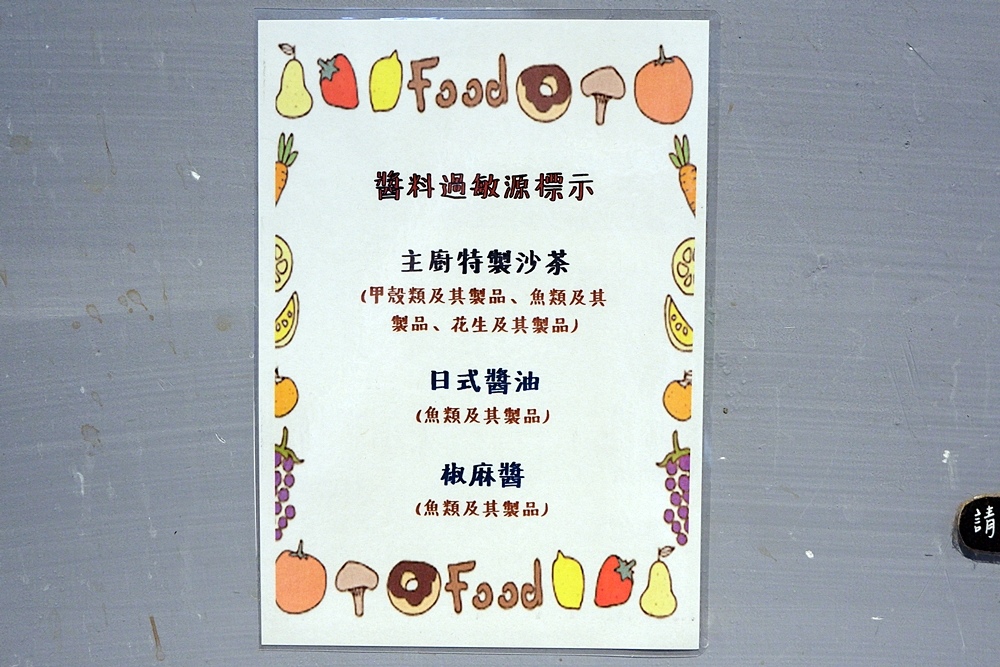 Food
醬料過敏源標示
主廚特製沙茶
(甲殼類及其製品、魚類及其
製品、花生及其製品)
日式醬油
(魚類及其製品)
椒麻醬
(魚類及其製品)
Food
請